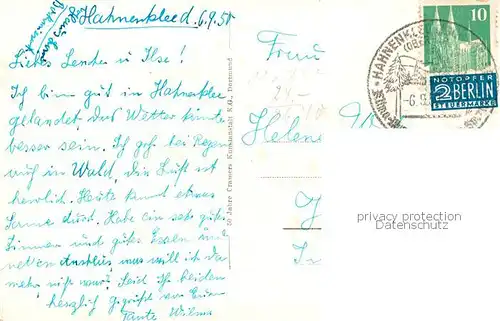 Hahnenklee d. 6.9.50
Liebes Lenchen u Ilse!
Ich bin gut in Hahnenklee
gelandet, das Wetter könnte
besser sein. Ich geh bei Regen
auch in Wald, die Luft ist
herrlich. Heute kommt etwas
Sonne durch. Habe ein sehr gutes
Zimmer und gutes Essen und
netten Anschluß, was will ich da
mehr. Seid Ihr beiden
herzlich gegrüßt von Eurer
Tante Wilma
50 Jahre Cramers Kunstanstalt K.G., Dortmund
Frau
Helen
In
10
HAHNENKLEE
-6.9.
NOTOPFER
2 BERLIN
STEUERMARKE
privacy protection
Datenschutz